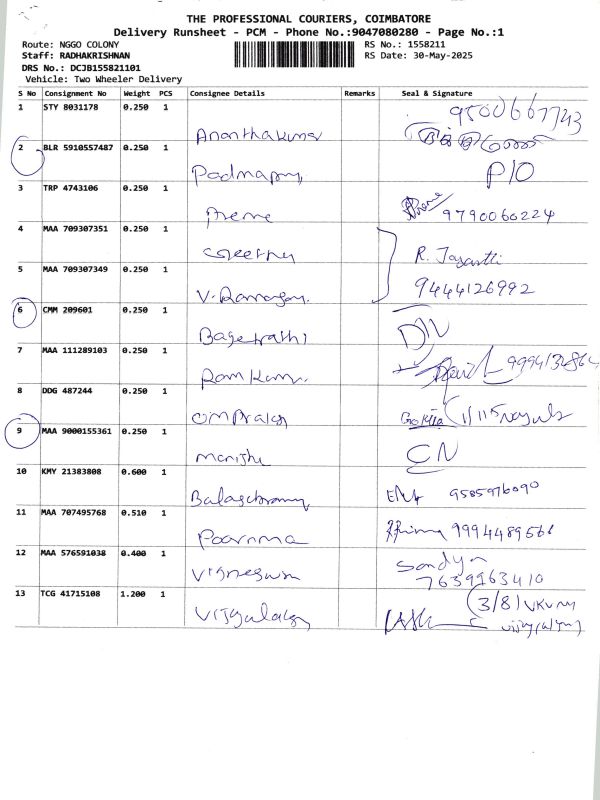 THE PROFESSIONAL COURIERS, COIMBATORE
Delivery Runsheet - PCM - Phone No.:9047080280 - Page No.:1
Route: NGGO COLONY
RS No.: 1558211
Staff: RADHAKRISHNAN
RS Date: 30-May-2025
DRS No.: DCJB155821101
Vehicle: Two Wheeler Delivery
S No Consignment No Weight PCS Consignee Details Remarks Seal & Signature
1 STY 8031178 0.250 1 Ananthakumar 9500667743
2 BLR 5910557487 0.250 1 P/O
3 TRP 4743106 0.250 1 Preme 9790060224
4 MAA 709307351 0.250 1 R. Jayanthi
5 MAA 709307349 0.250 1 9444126992
6 CMM 209601 0.250 1 Bagerathi D/L
7 MAA 111289103 0.250 1 Ram Kumar
8 DDG 487244 0.250 1 Omprakash
9 MAA 9000155361 0.250 1 CN
10 KMY 21383808 0.600 1 9585976090
11 MAA 707495768 0.510 1 Poornima 9994489566
12 MAA 576591038 0.400 1 Sandya
7639963410
13 TCG 41715108 1.200 1 3/81 VKV